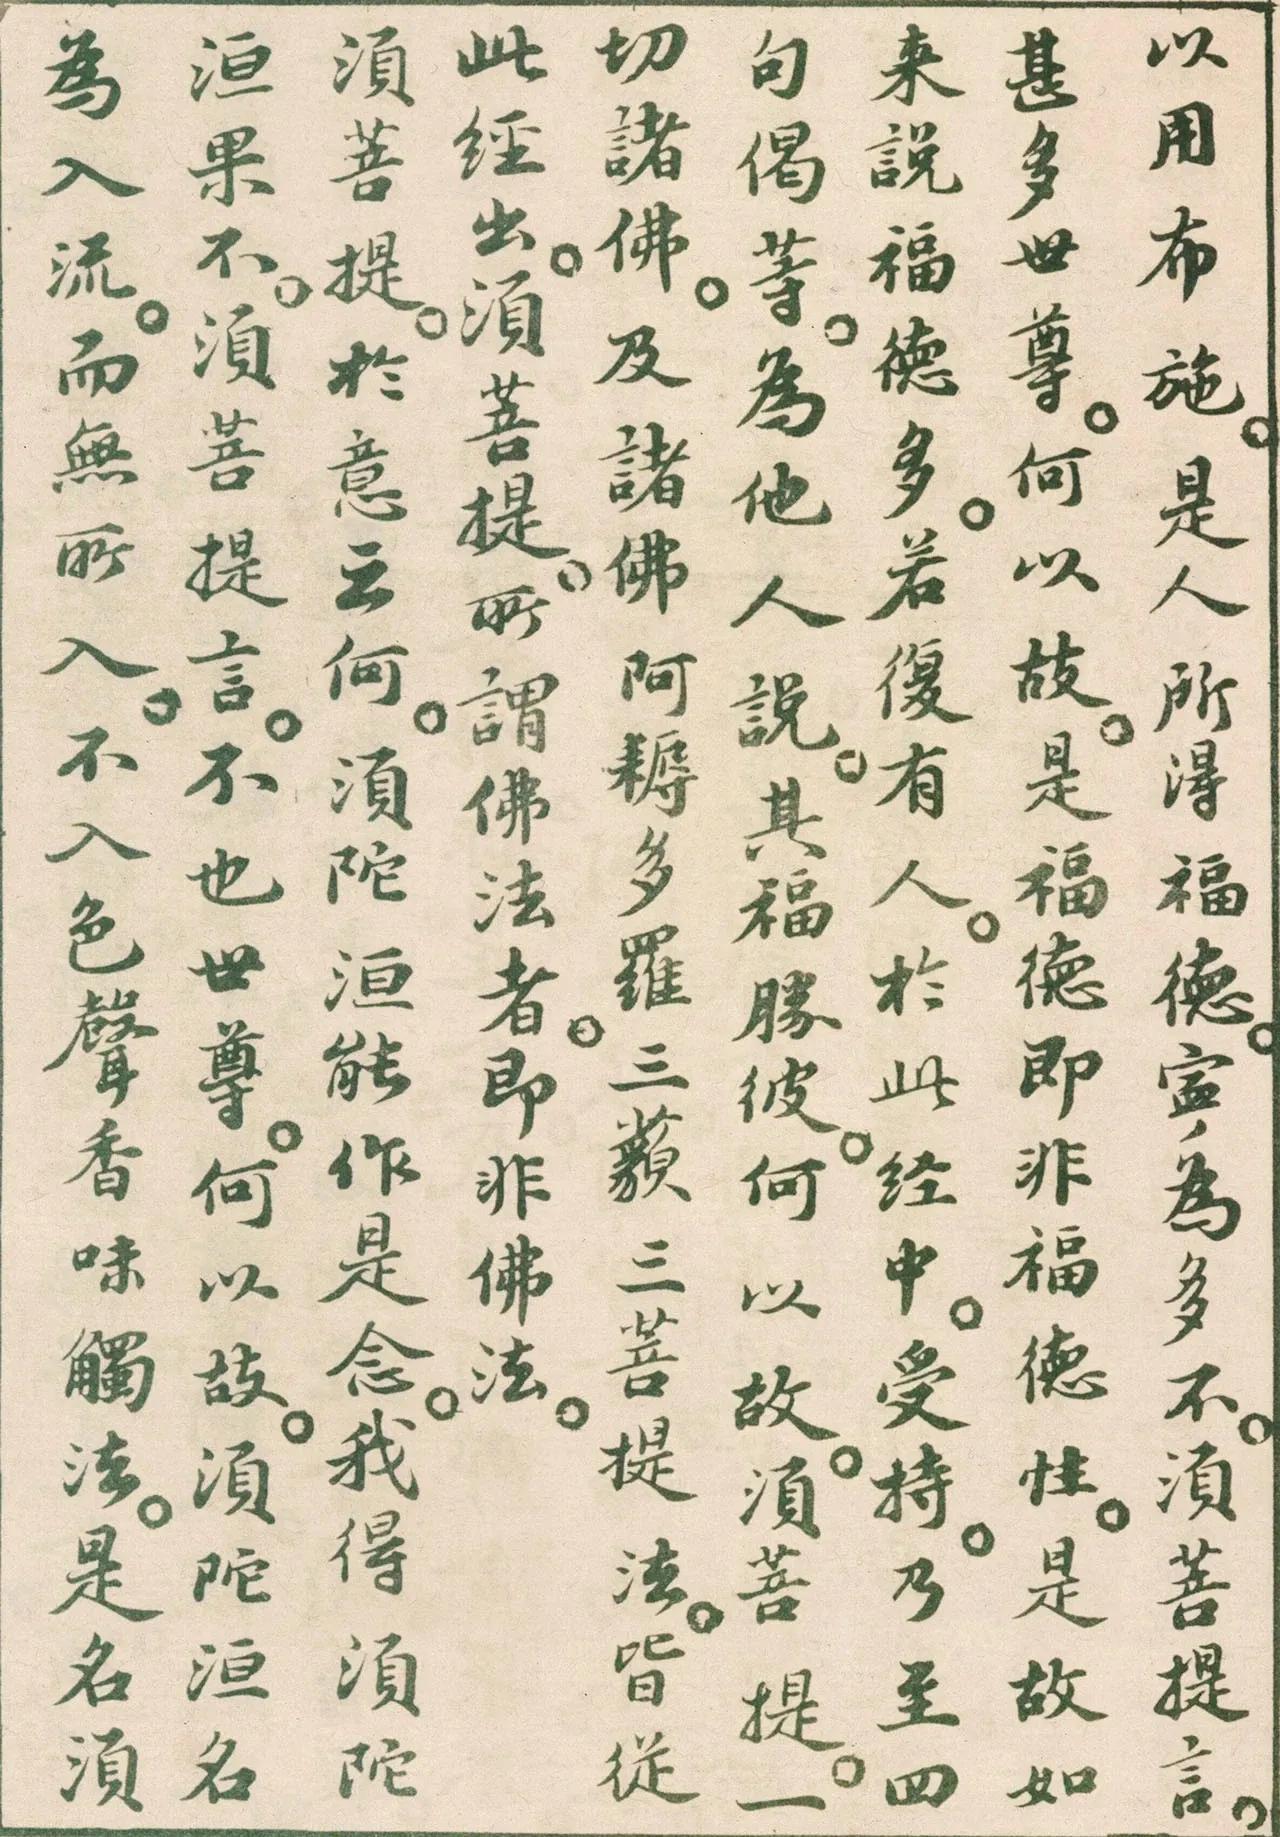 以用布施。是人所得福德。寧為多不。須菩提言。
甚多世尊。何以故。是福德即非福德性。是故如
来説福德多。若復有人。於此经中。受持。乃至四
句偈等。為他人説。其福勝彼。何以故。須菩提。一
切諸佛。及諸佛阿耨多羅三藐三菩提法。皆從
此經出。須菩提。所謂佛法者。即非佛法。
須菩提。於意云何。須陀洹能作是念。我得須陀
洹果不。須菩提言。不也世尊。何以故。須陀洹名
為入流。而無所入。不入色聲香味觸法。是名須